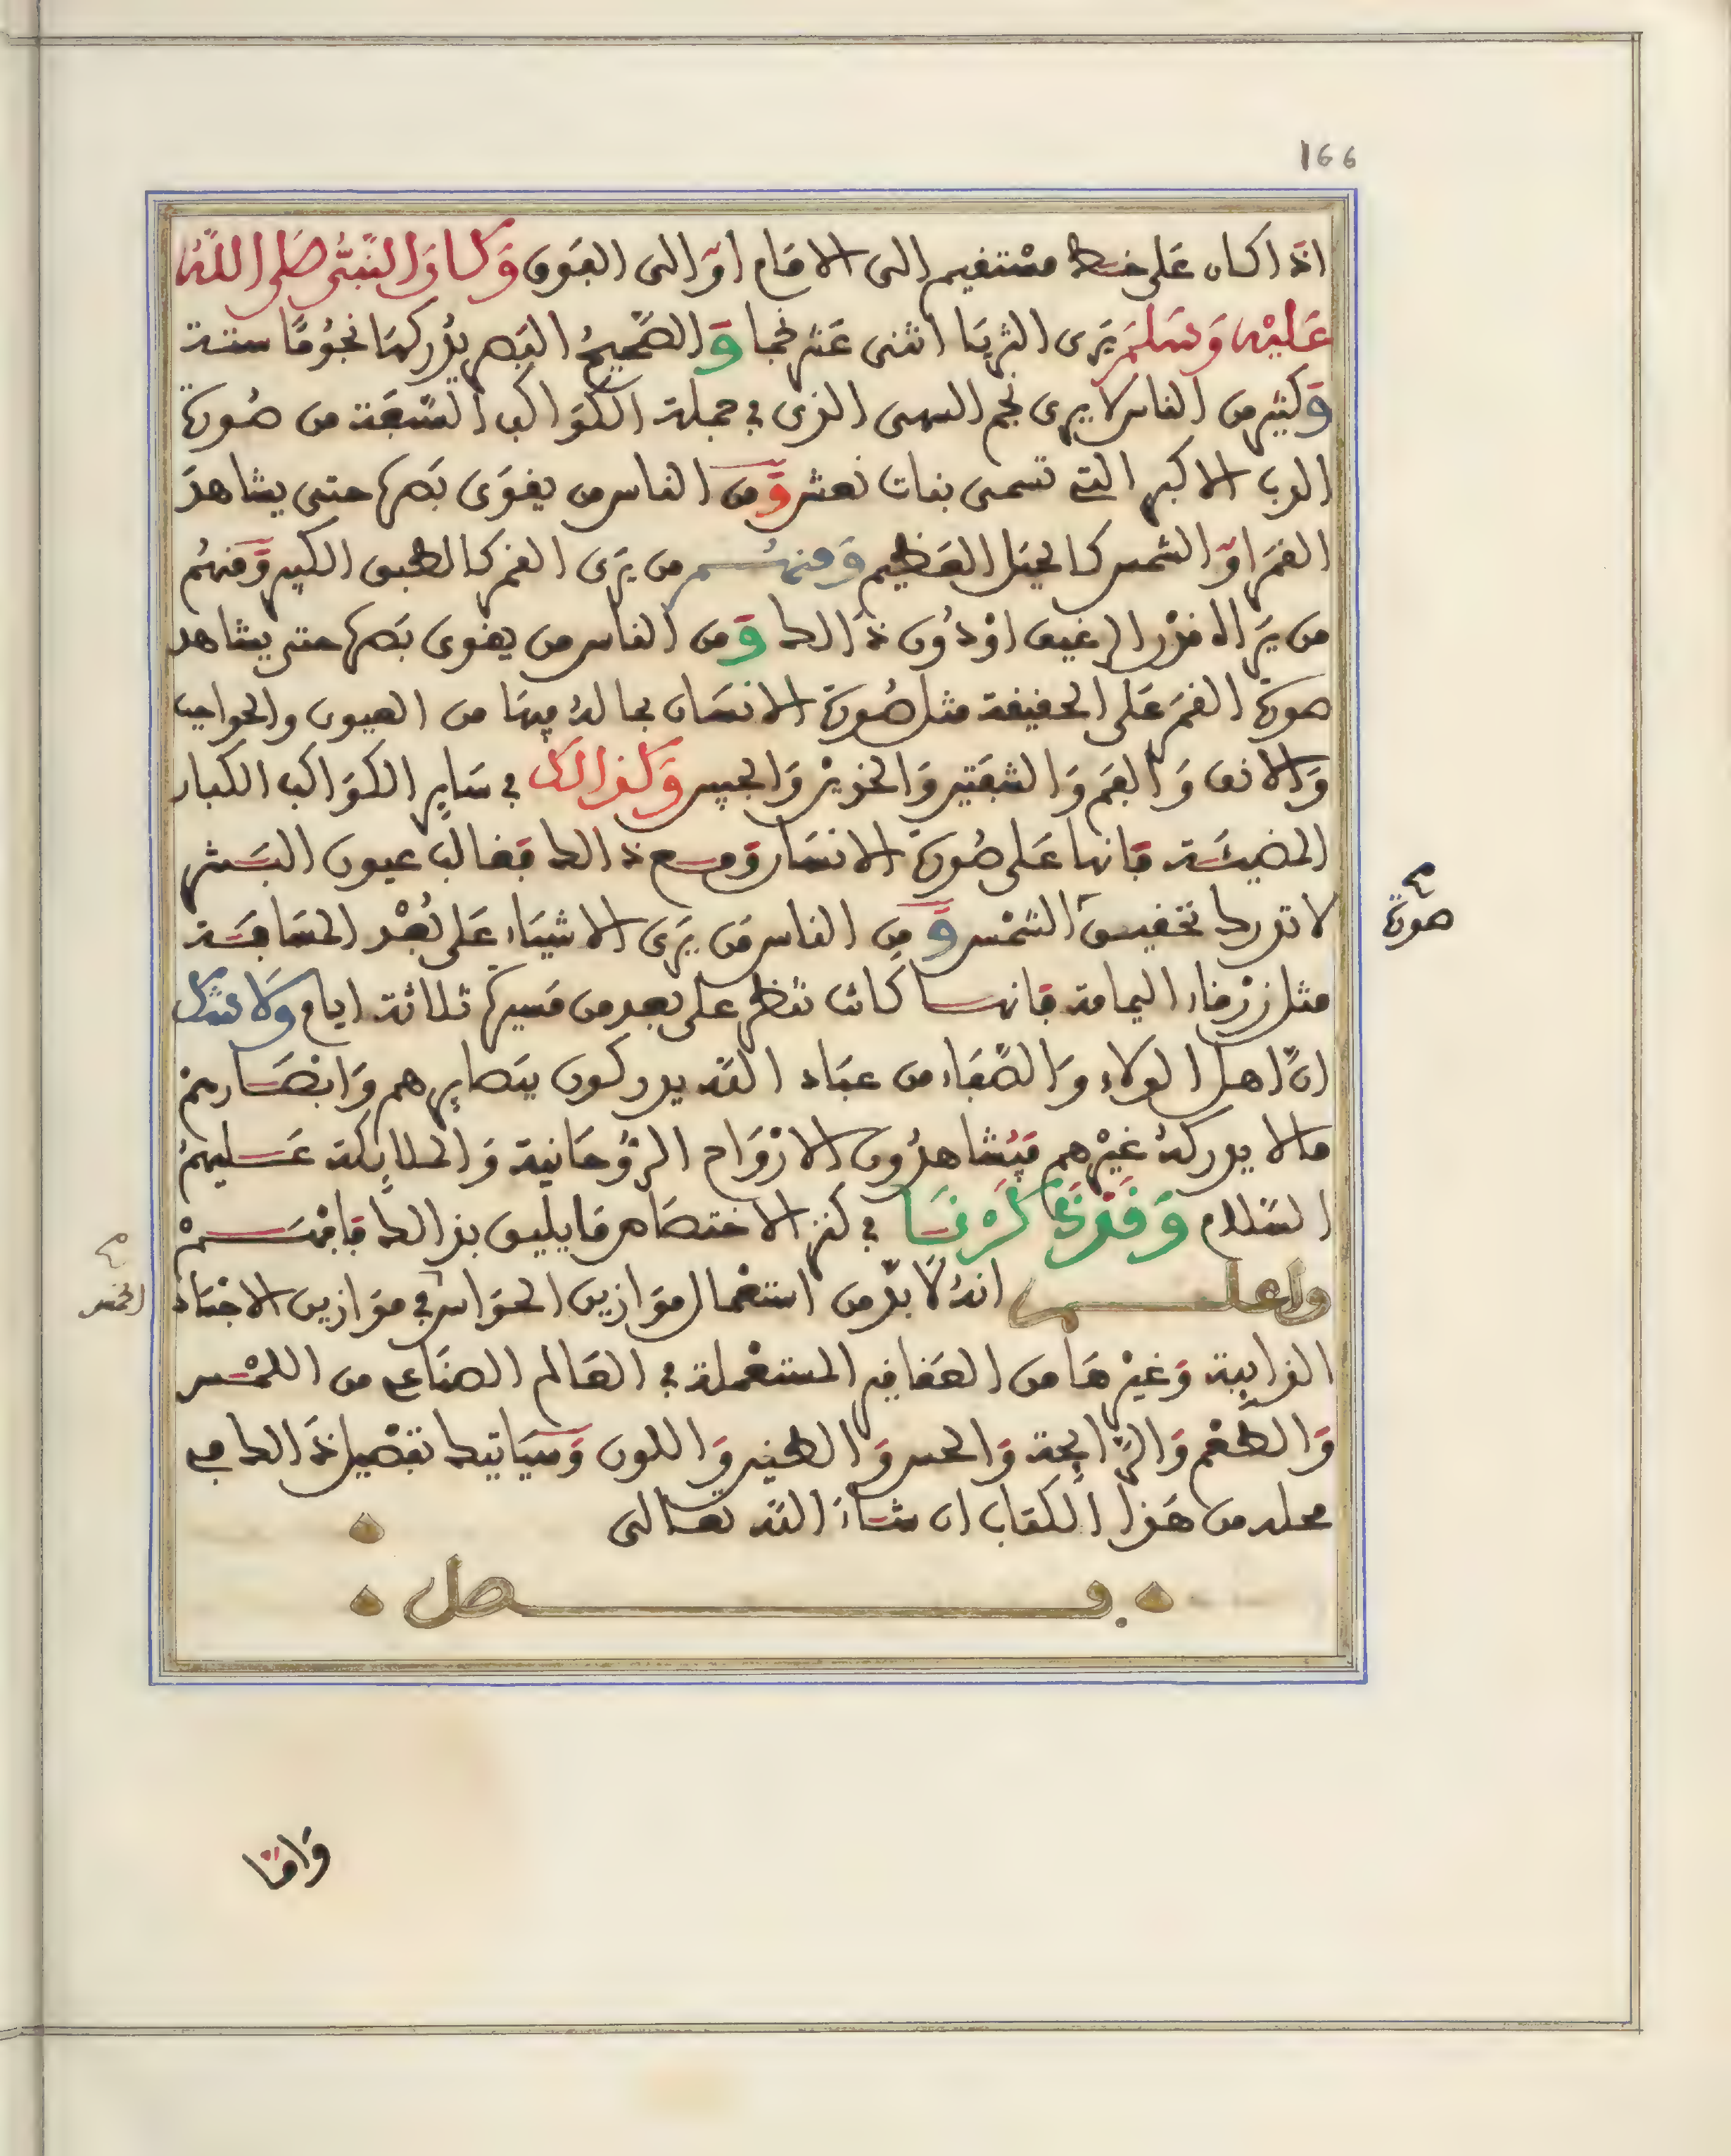 166
اذا كان على خط مستقيم الى الامام او الى الفوق وكان النبي صلى الله
عليه وسلم يرى الثريا اثنى عشر نجما والصحيح البصر يدركها نجوما ستة
وكثير من الناس لا يرى نجم السهى الذى في جملة الكواكب السبعة من صورة
الدب الاكبر التي تسمى بنات نعش ومن الناس من يقوى بصره حتى يشاهد
القمر او الشمس كالجبل العظيم ومنهم من يرى القمر كالطبق الكبير ومنهم
من يراه قدر الرغيف او دون ذالك ومن الناس من يقوى بصره حتى يشاهد
صورة القمر على الحقيقة مثل صورة الانسان بما له فيها من العيون والحواجب
والانف والفم والشفتين والخدين والجبين وكذالك في ساير الكواكب الكبار
المضيئة فانها على صورة الانسان ومع ذالك فغالب عيون البشر
لا تدرك تحقيق الشمس ومن الناس من يرى الاشياء على بعد المسافة
صورة
مثل زرقاء اليمامة فانها كانت تنظر على بعد من مسيرة ثلاثة ايام ولا شك
ان اهل الولاء والصفاء من عباد الله يدركون ببصايرهم وابصارهم
مالا يدركه غيرهم فيشاهدون الارواح الروحانية والملايكة عليهم
السلام وقد ذكرنا في كنز الاختصاص ما يليق بذالك فافهم
واعلم انه لا بد من استعمال موازين الحواس في موازين الاجساد
الذايبة وغيرها من العقاقير المستعملة في العالم الصناعي من اللمس
والطعم والرايحة والحس والطنين واللون وسياتيك تفصيل ذالك في
محله من هذا الكتاب ان شاء الله تعالى
فصل
واما